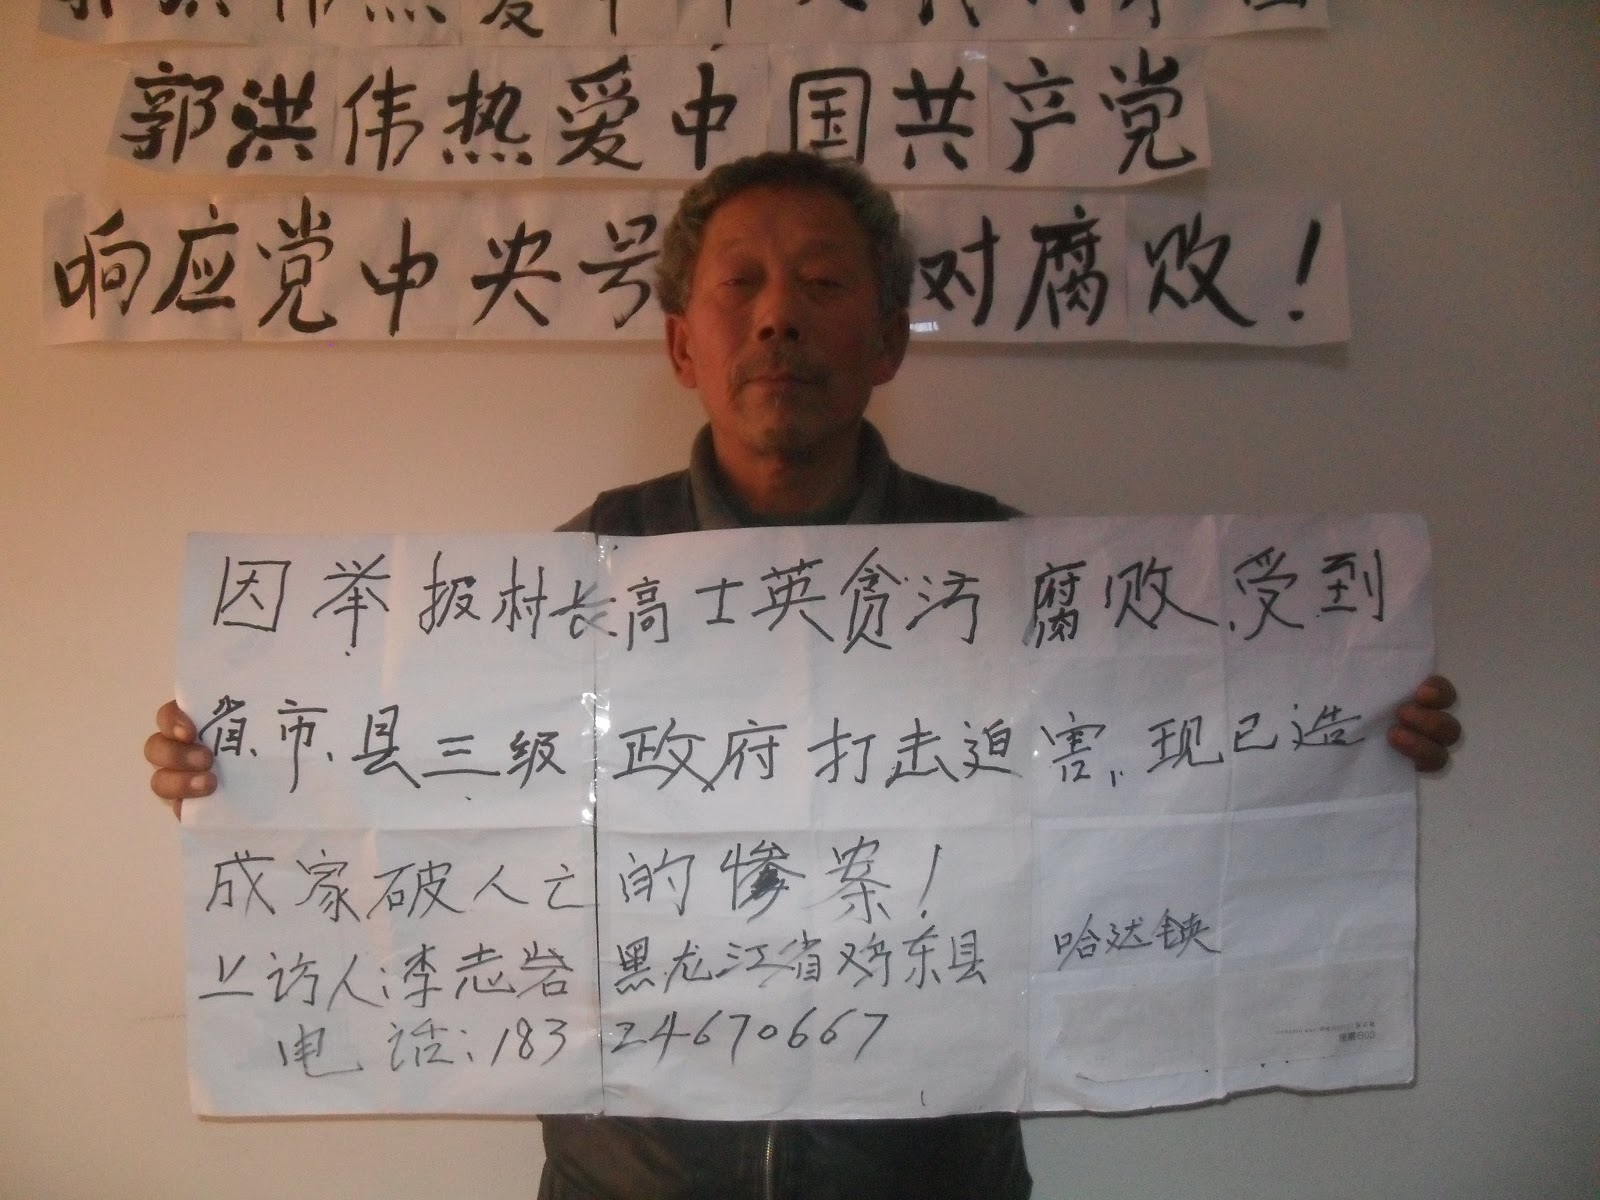 郭洪伟热爱中
郭洪伟热爱中国共产党
响应党中央号 对腐败!
因举报村长高士英贪污腐败、受到
省、市、县三级政府打击迫害、现已造
成家破人亡的惨案!
上访人:李志岩 黑龙江省鸡东县 哈达镇
电话:18324670667